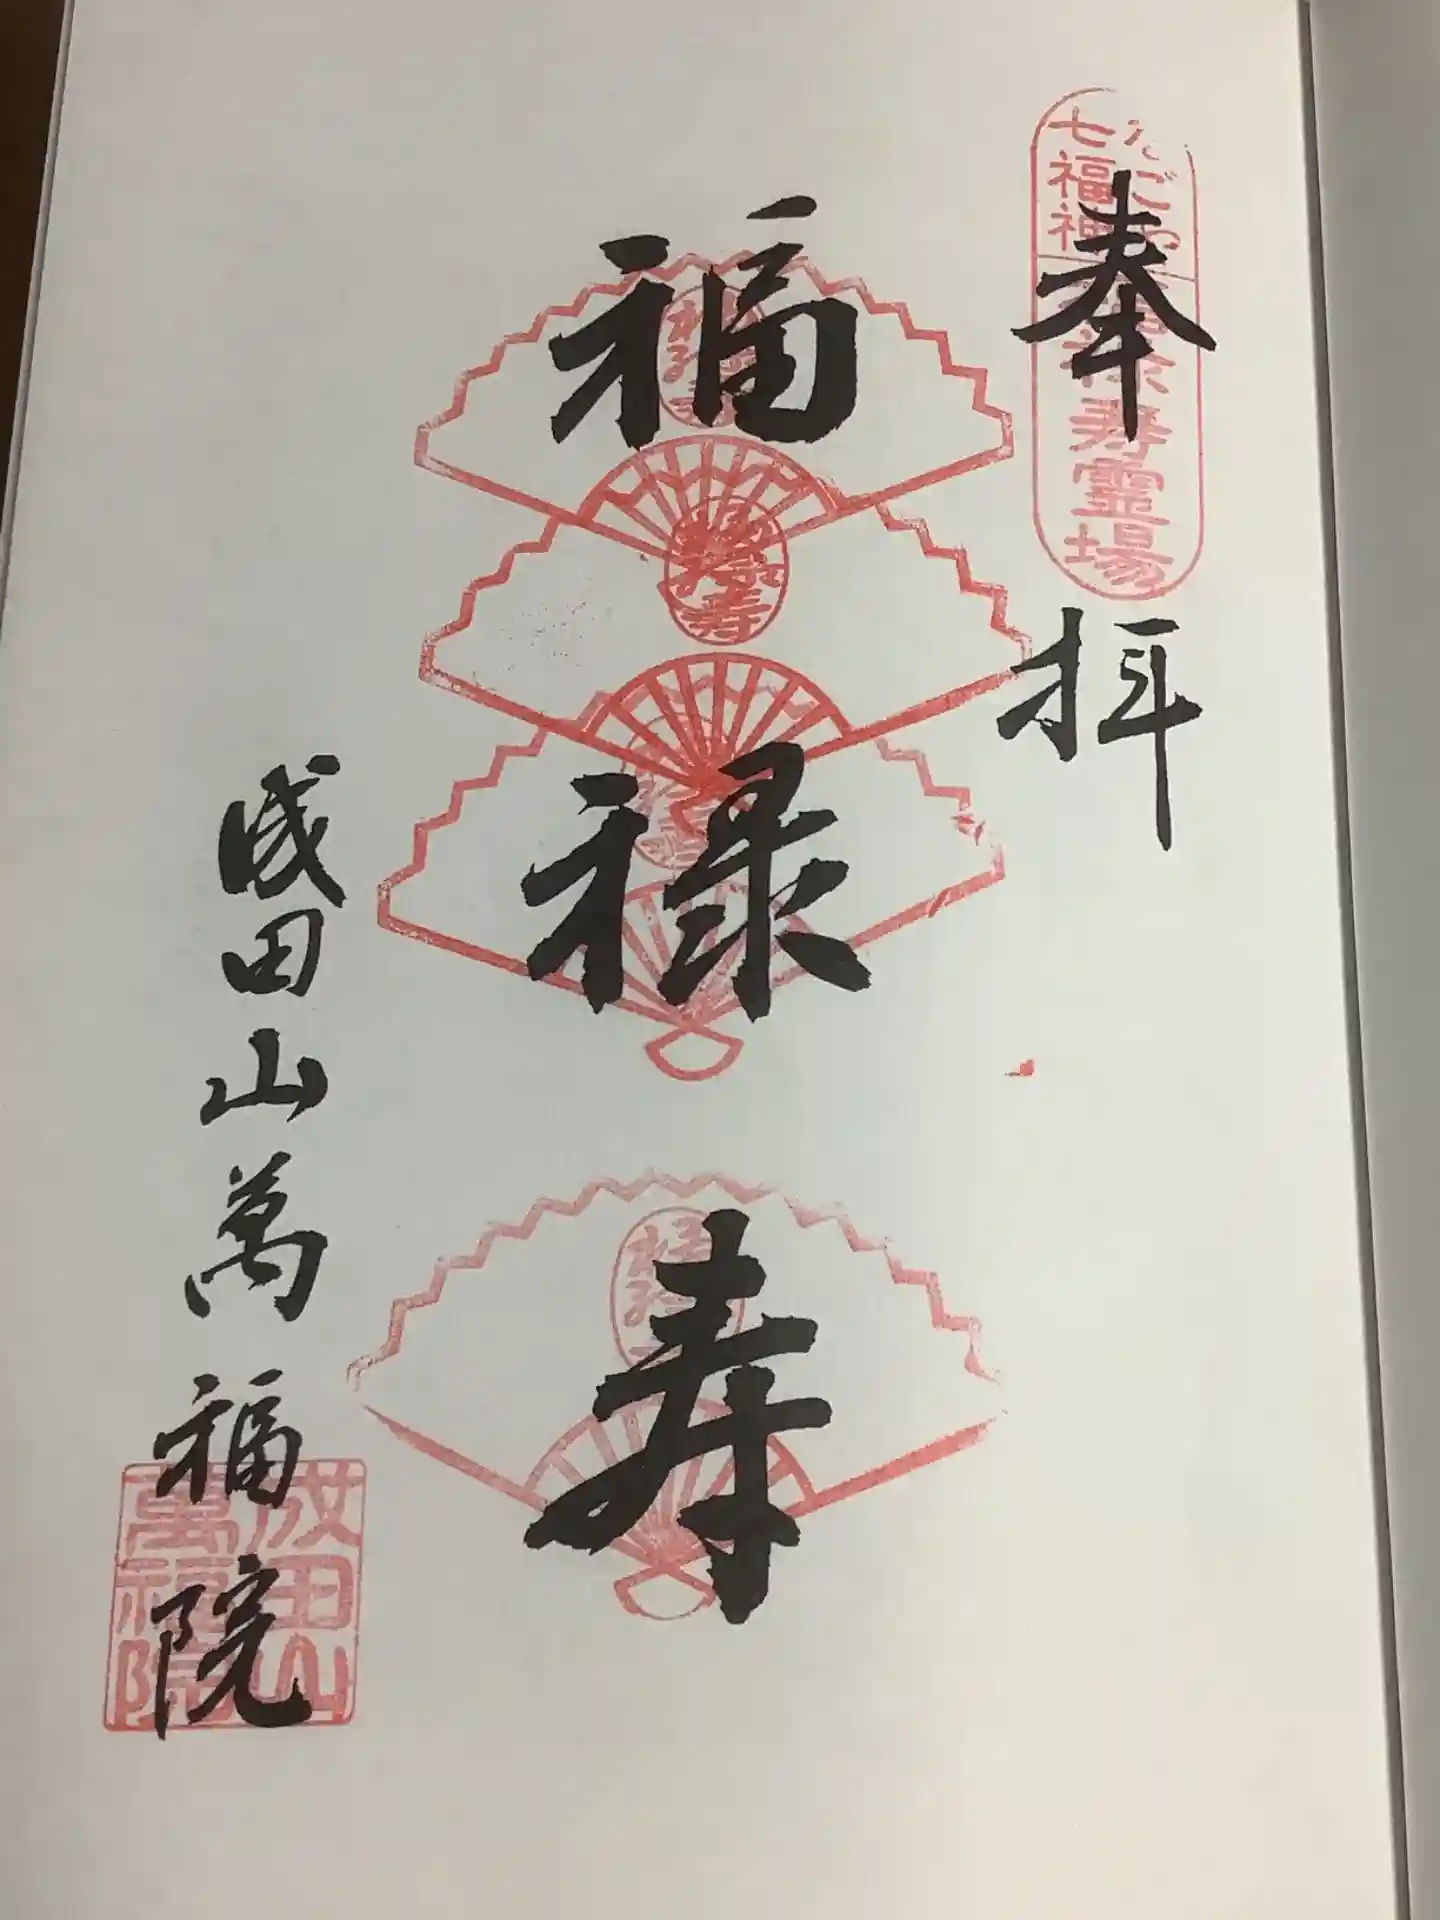 奉拝
なごや
七福神
福禄寿霊場
福禄寿
福禄寿
成田山萬福院
成田山
萬福院